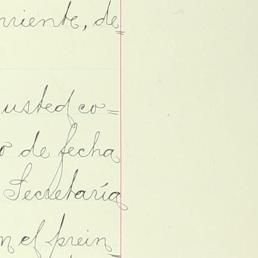 rriente, de=
usted co=
o de fecha
Secretaría
n el prein